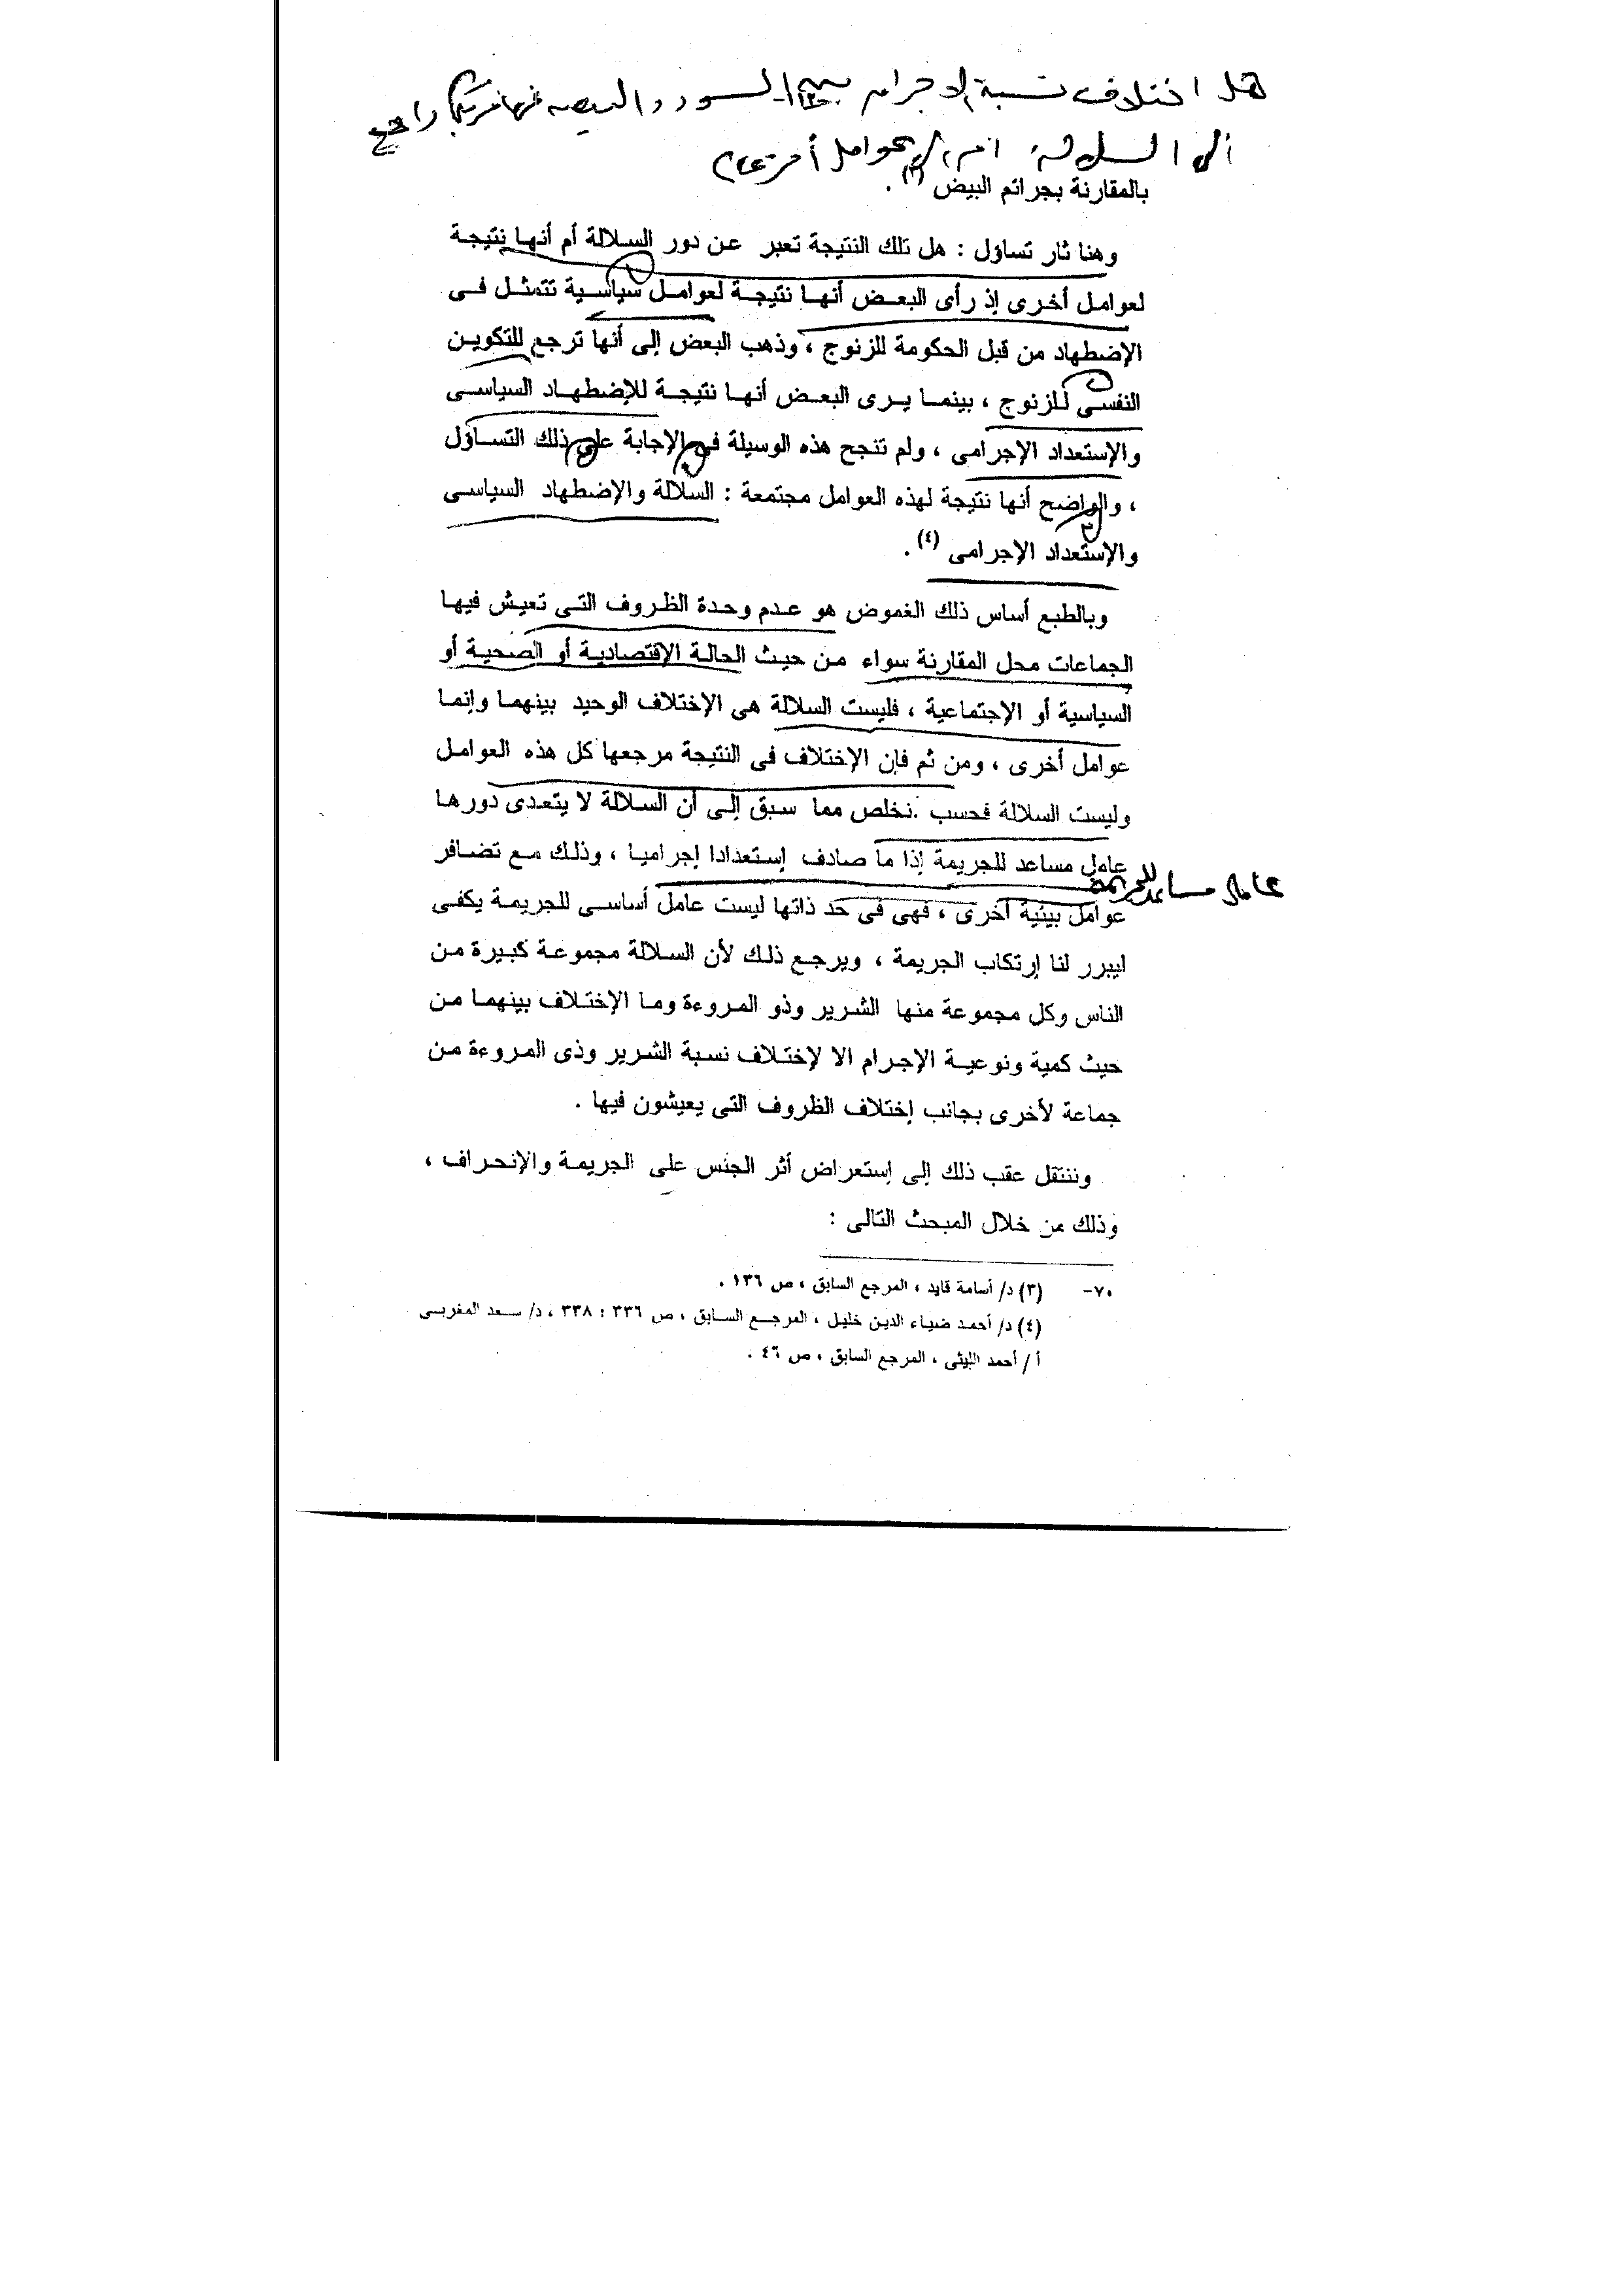 هل اختلاف نسبة الاجرام بين السود والبيض فى امريكا راجع
الى السلالة ام الى عوامل أخرى
بالمقارنة بجرائم البيض (٣) .
وهنا ثار تساؤل : هل تلك النتيجة تعبر عن دور السلالة أم أنها نتيجة
لعوامل أخرى إذ رأى البعض أنها نتيجة لعوامل سياسية تتمثل فى
الإضطهاد من قبل الحكومة للزنوج ، وذهب البعض إلى أنها ترجع للتكوين
النفسى للزنوج ، بينما يرى البعض أنها نتيجة للإضطهاد السياسى
والإستعداد الإجرامى ، ولم تنجح هذه الوسيلة فى الإجابة على ذلك التساؤل
، والواضح أنها نتيجة لهذه العوامل مجتمعة : السلالة والإضطهاد السياسى
والإستعداد الإجرامى (٤) .
وبالطبع أساس ذلك الغموض هو عدم وحدة الظروف التى تعيش فيها
الجماعات محل المقارنة سواء من حيث الحالة الإقتصادية أو الصحية أو
السياسية أو الإجتماعية ، فليست السلالة هى الإختلاف الوحيد بينهما وإنما
عوامل أخرى ، ومن ثم فإن الإختلاف فى النتيجة مرجعها كل هذه العوامل
وليست السلالة فحسب . نخلص مما سبق إلى أن السلالة لا يتعدى دورها
عامل مساعد للجريمة إذا ما صادف إستعدادا إجراميا ، وذلك مع تضافر
عامل مساعد للجريمة
عوامل بيئية أخرى ، فهى فى حد ذاتها ليست عامل أساسى للجريمة يكفى
ليبرر لنا إرتكاب الجريمة ، ويرجع ذلك لأن السلالة مجموعة كبيرة من
الناس وكل مجموعة منها الشرير وذو المروءة وما الإختلاف بينهما من
حيث كمية ونوعية الإجرام الا لإختلاف نسبة الشرير وذى المروءة من
جماعة لأخرى بجانب إختلاف الظروف التى يعيشون فيها .
وننتقل عقب ذلك إلى إستعراض أثر الجنس على الجريمة والإنحراف ،
وذلك من خلال المبحث التالى :
٧٠- (٣) د/ أسامة قايد ، المرجع السابق ، ص ١٣٦ .
(٤) د/ أحمد ضياء الدين خليل ، المرجع السابق ، ص ٣٣٦ : ٣٣٨ ، د/ سعد المغربى
أ / أحمد الليثى ، المرجع السابق ، ص ٤٦ .